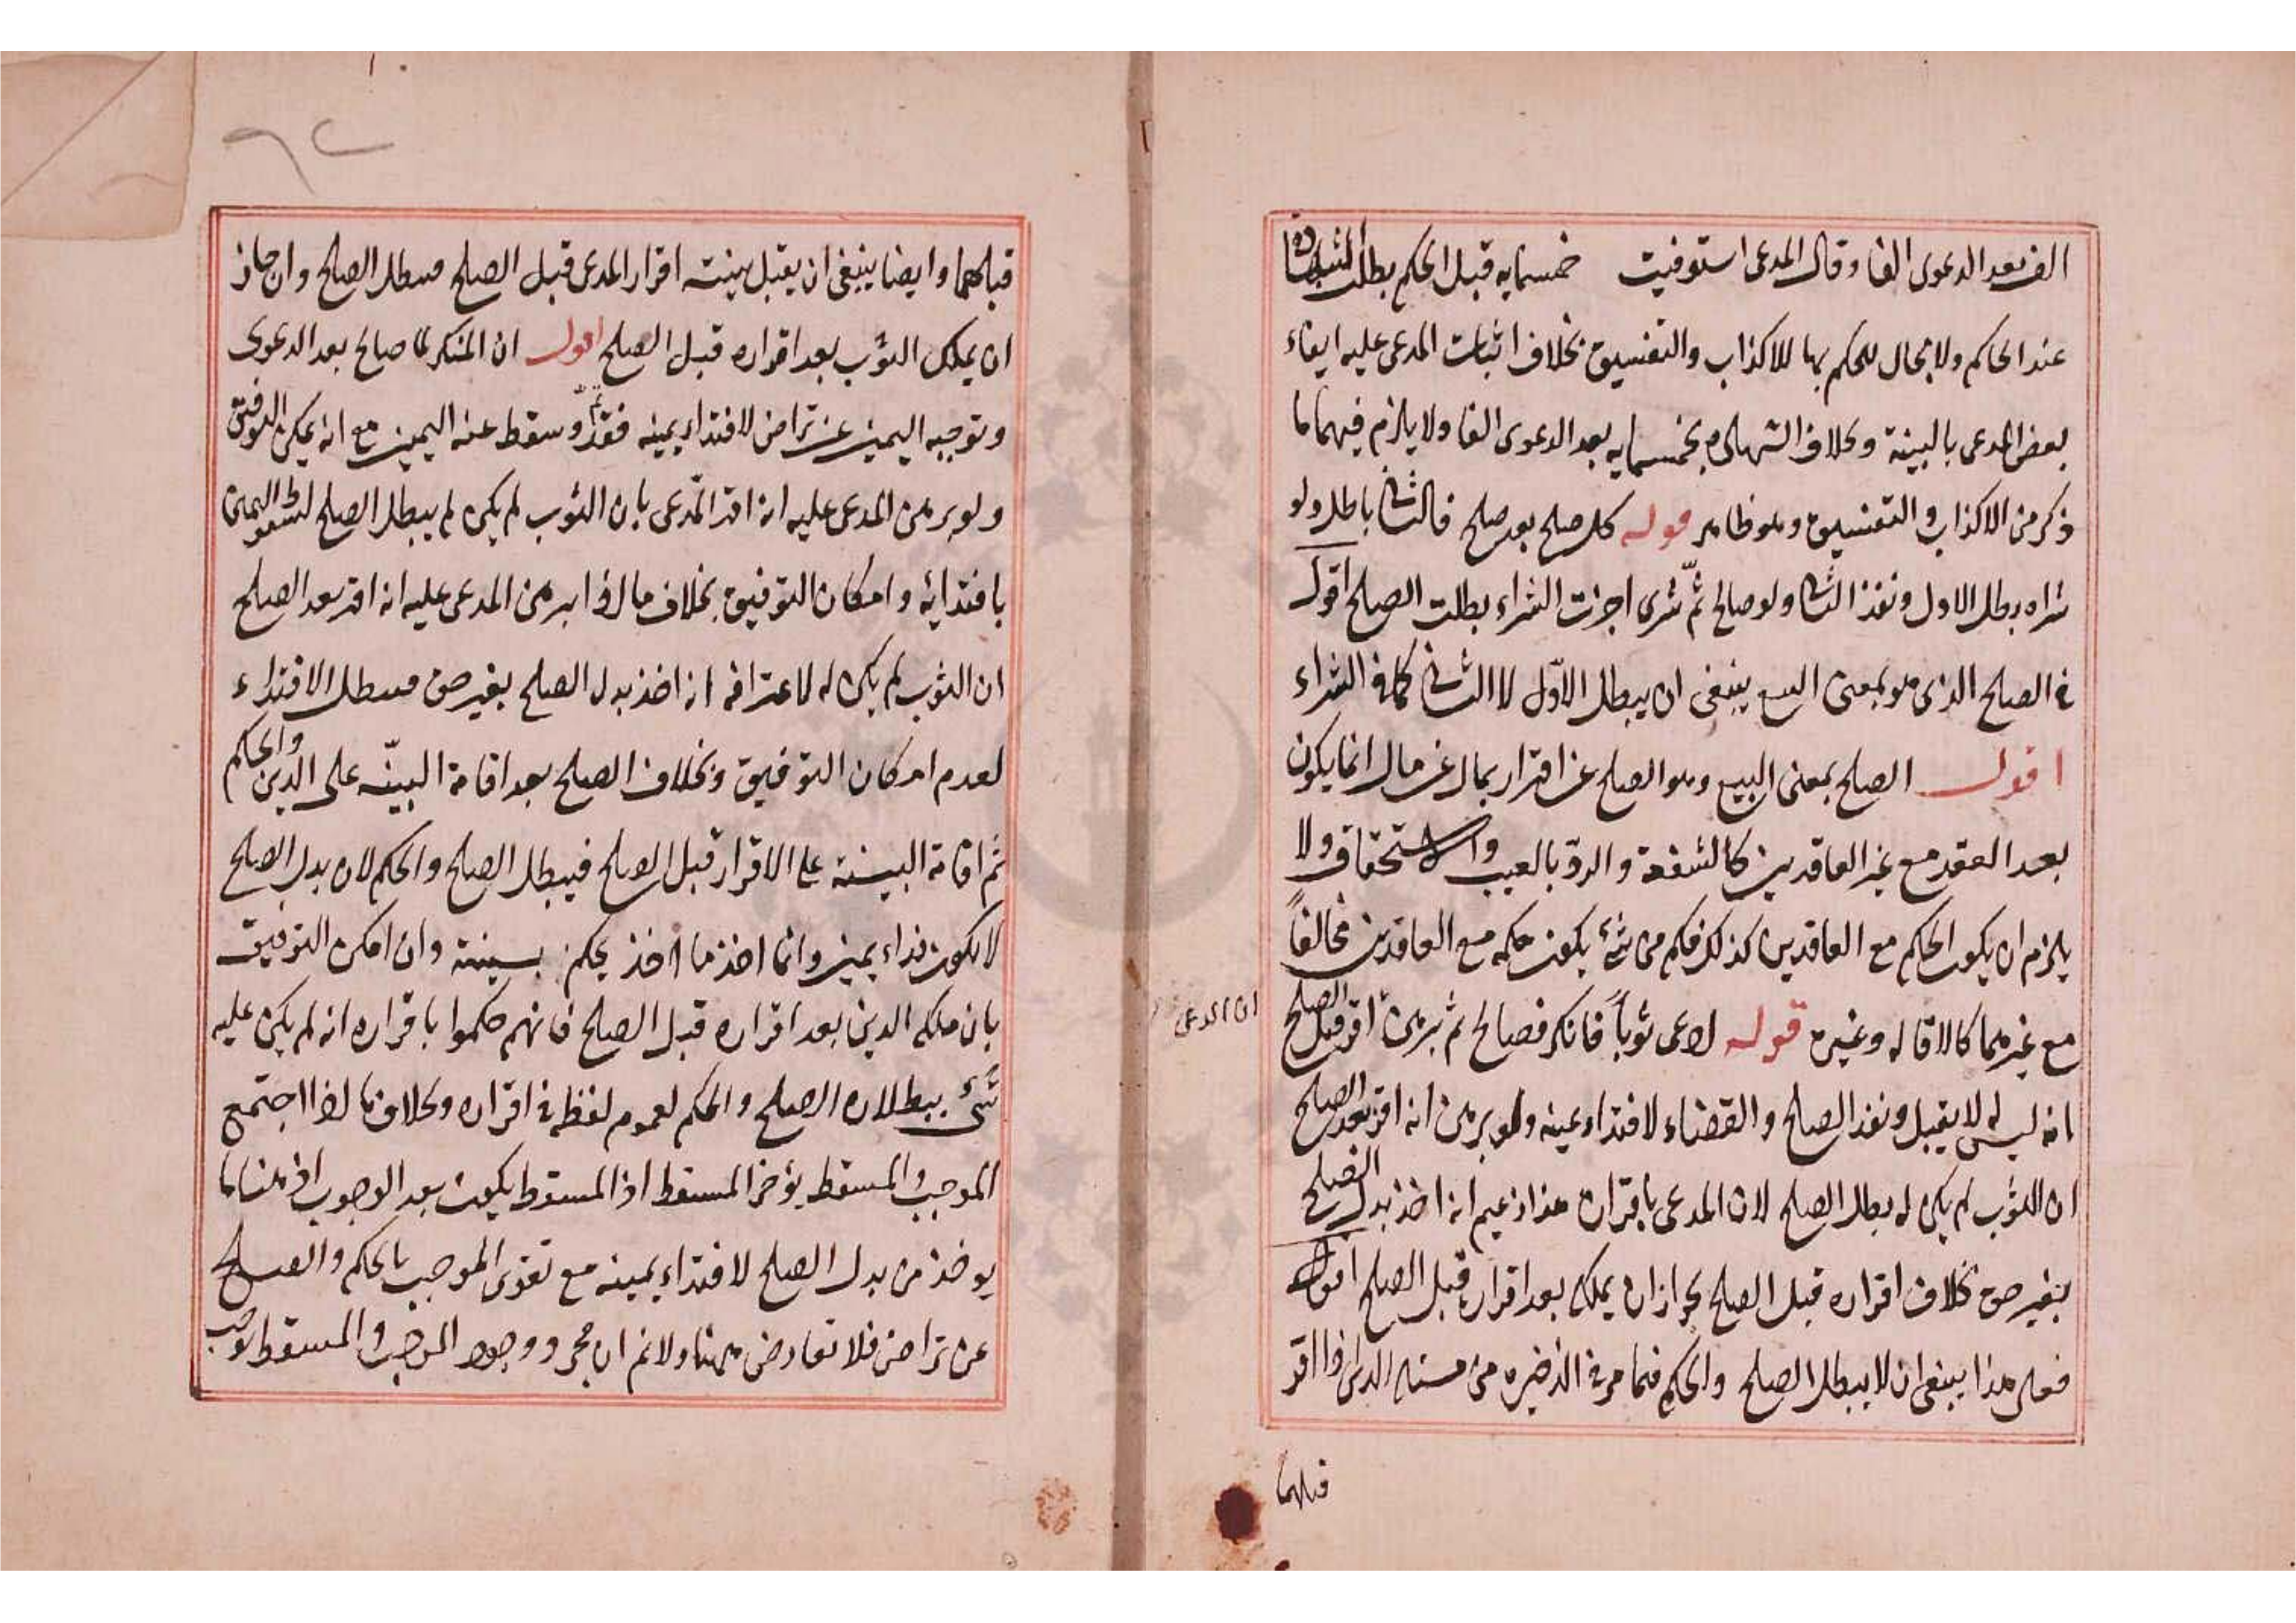 الف بعد الدعوى الفا وقال المدعى استوفيت خمسمايه قبل الحكم بطلت الشهادة
عند الحاكم ولا مجال للحكم بها للاكذاب والتفسيق بخلاف اثبات المدعى عليه ايفاء
بعض المدعى بالبينة وبخلاف الشهادة بخمسمايه بعد الدعوى الفا ولا يلزم فيهما ما
ذكر من الاكذاب والتفسيق وهو ظاهر قوله كل صلح بعد صلح فالثانى باطل ولو
شراه بطل الاول ونفذ الثانى ولو صالح ثم شرى اجزت الشراء بطلت الصلح اقول
فى الصلح الذى هو بمعنى البيع ينبغى ان يبطل الاول لا الثانى كما فى الشراء
اقول الصلح بمعنى البيع وهو الصلح عن اقرار بمال عن مال انما يكون
بعد العقد مع غير العاقدين كالشفعة والرد بالعيب والاستحقاق ولا
يلزم ان يكون الحكم مع العاقدين كذلك فكم من شئ يكون حكمه مع العاقدين مخالفاً
مع غيرهما كالاقاله وغيره قوله ادعى ثوباً فانكر فصالح ثم برهن اقر قبل الصلح
ان المدعى
انه ليس له لا يقبل ونفذ الصلح والقضاء لافتداء يمينه ولو برهن انه اقر بعد الصلح
ان الثوب لم يكن له بطل الصلح لان المدعى باقراره هذا زعم انه اخذ بدل الصلح
بغير حق بخلاف اقراره قبل الصلح لجواز ان يملكه بعد اقراره قبل الصلح اقول
فعلى هذا ينبغى ان لا يبطل الصلح والحكم فيما مر فى الذخيره من مسئله الدين اذا اقر
قبلهما
قبلهما وايضا ينبغى ان يقبل بينة اقرار المدعى قبل الصلح فيبطل الصلح وان جاز
ان يملك الثوب بعد اقراره قبل الصلح اقول ان المنكر لما صالح بعد الدعوى
وتوجيه اليمين عن تراض لافتداء يمينه فقد وسقط عنه اليمين مع انه يمكن التوفيق
ولو برهن المدعى عليه انه اقر المدعى بان الثوب لم يكن لم يبطل الصلح لسقوط اليمين
بافتدائه وامكان التوفيق بخلاف ما لو برهن المدعى عليه انه اقر بعد الصلح
ان الثوب لم يكن له لاعترافه انه اخذ بدل الصلح بغير حق فيبطل الافتداء
لعدم امكان التوفيق وبخلاف الصلح بعد اقامة البينّه على الدين والحكم
ثم اقامة البينة على الاقرار قبل الصلح فيبطل الصلح والحكم لان بدل الصلح
لا يكون فداء يمين وانما اخذ ما اخذ بحكم ببينة وان امكن التوفيق
بان ملكه الدين بعد اقراره قبل الصلح فانهم حكموا باقراره انه لم يكن عليه
شئ ببطلان الصلح والحكم لعموم لفظه فى اقراره وبخلاف ما اذا اجتمع
الموجب والمسقط يؤخر المسقط اذ المسقوط يكون بعد الوجوب اذ هنا ما
يوخذ من بدل الصلح لافتداء يمينه مع تقوى الموجب بالحكم والصلح
عن تراض فلا تعارض هنا ولا نم ان مجرد وجود الموجب والمسقط يوجب